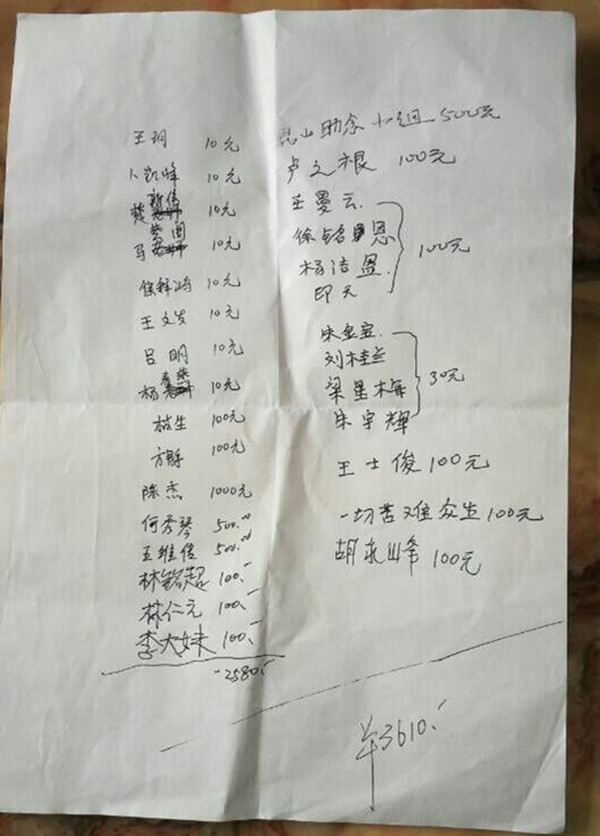 王玥 10元
卜凯峰 10元
楚新伟 10元
马 10元
侯 10元
王文发 10元
吕明 10元
杨 10元
林生 100元
方 100元
陈杰 1000元
何秀琴 500.00
王维俊 500.00
林铭超 100.
林仁元 100.
李大妹 100.
2580.
昆山助念小组 500元
卢文根 100元
王曼云
徐铭恩
杨洁盈
印天
100元
朱宝
刘桂兰
梁星梅
朱宇輝
30元
王士俊 100元
一切苦难众生 100元
胡永峰 100元
羊3610.